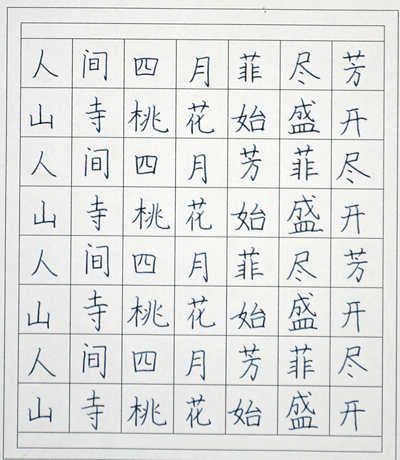 人间四月菲尽芳
山寺桃花始盛开
人间四月芳菲尽
山寺桃花始盛开
人间四月菲尽芳
山寺桃花始盛开
人间四月芳菲尽
山寺桃花始盛开